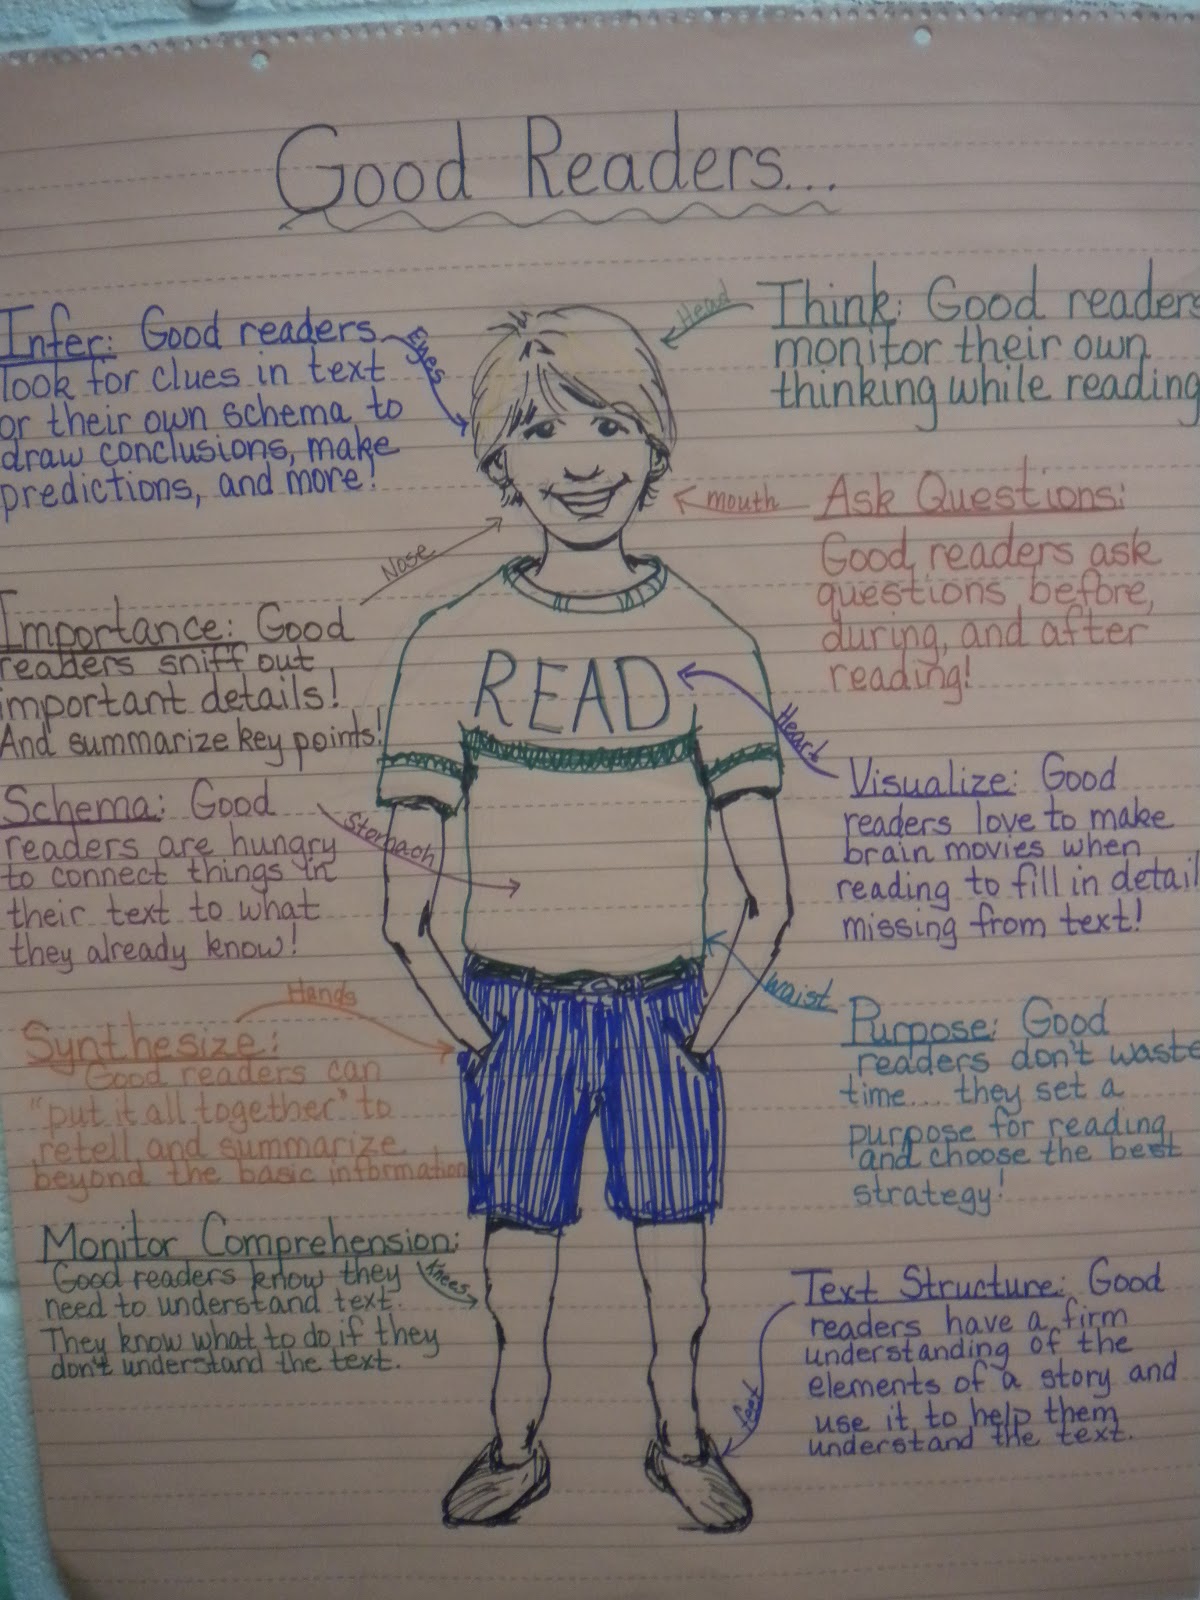 Good Readers...
Infer: Good readers
look for clues in text
or their own schema to
draw conclusions, make
predictions, and more!
Eyes
Head
Think: Good readers
monitor their own
thinking while reading
mouth
Ask Questions:
Good readers ask
questions before,
during, and after
reading!
Nose
Importance: Good
readers sniff out
important details!
And summarize key points!
READ
Heart
Visualize: Good
readers love to make
brain movies when
reading to fill in detail
missing from text!
Schema: Good
readers are hungry
to connect things in
their text to what
they already know!
Stomach
waist
Purpose: Good
readers don't waste
time.... they set a
purpose for reading
and choose the best
strategy!
Hands
Synthesize:
Good readers can
"put it all together" to
retell and summarize
beyond the basic information
Monitor Comprehension:
Good readers know they
need to understand text.
They know what to do if they
don't understand the text.
Knees
Text Structure: Good
readers have a firm
understanding of the
elements of a story and
use it to help them
understand the text.
feet